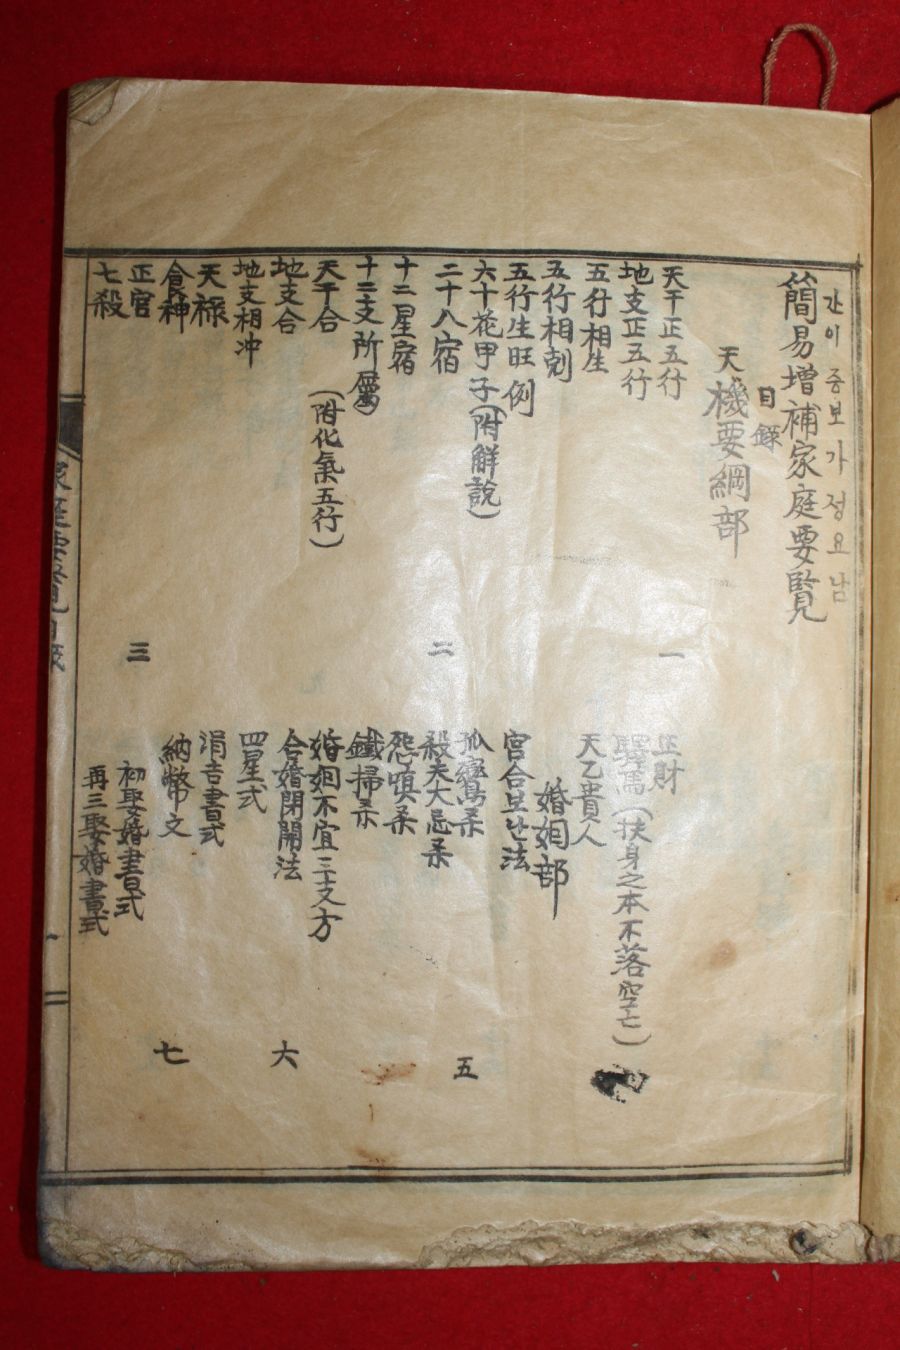 간이증보가정요남
簡易增補家庭要覽
目錄
天機要綱部
天干正五行
一
地支正五行
五行相生
五行相剋
五行生旺例
六十花甲子(附解說)
二十八宿
二
十二星宿
十二支所屬
天干合(附化氣五行)
地支合
地支相冲
天祿
食神
正官
三
七殺
正財
驛馬(扶身之本不落空亡)
天乙貴人
婚姻部
宮合보난法
孤鸞杀
五
殺夫大忌杀
怨嗔杀
鐵掃杀
婚姻不宜三支方
合婚閉開法
六
四星式
涓吉書式
納幣文
七
初娶婚書式
再三娶婚書式
家庭要覽目錄